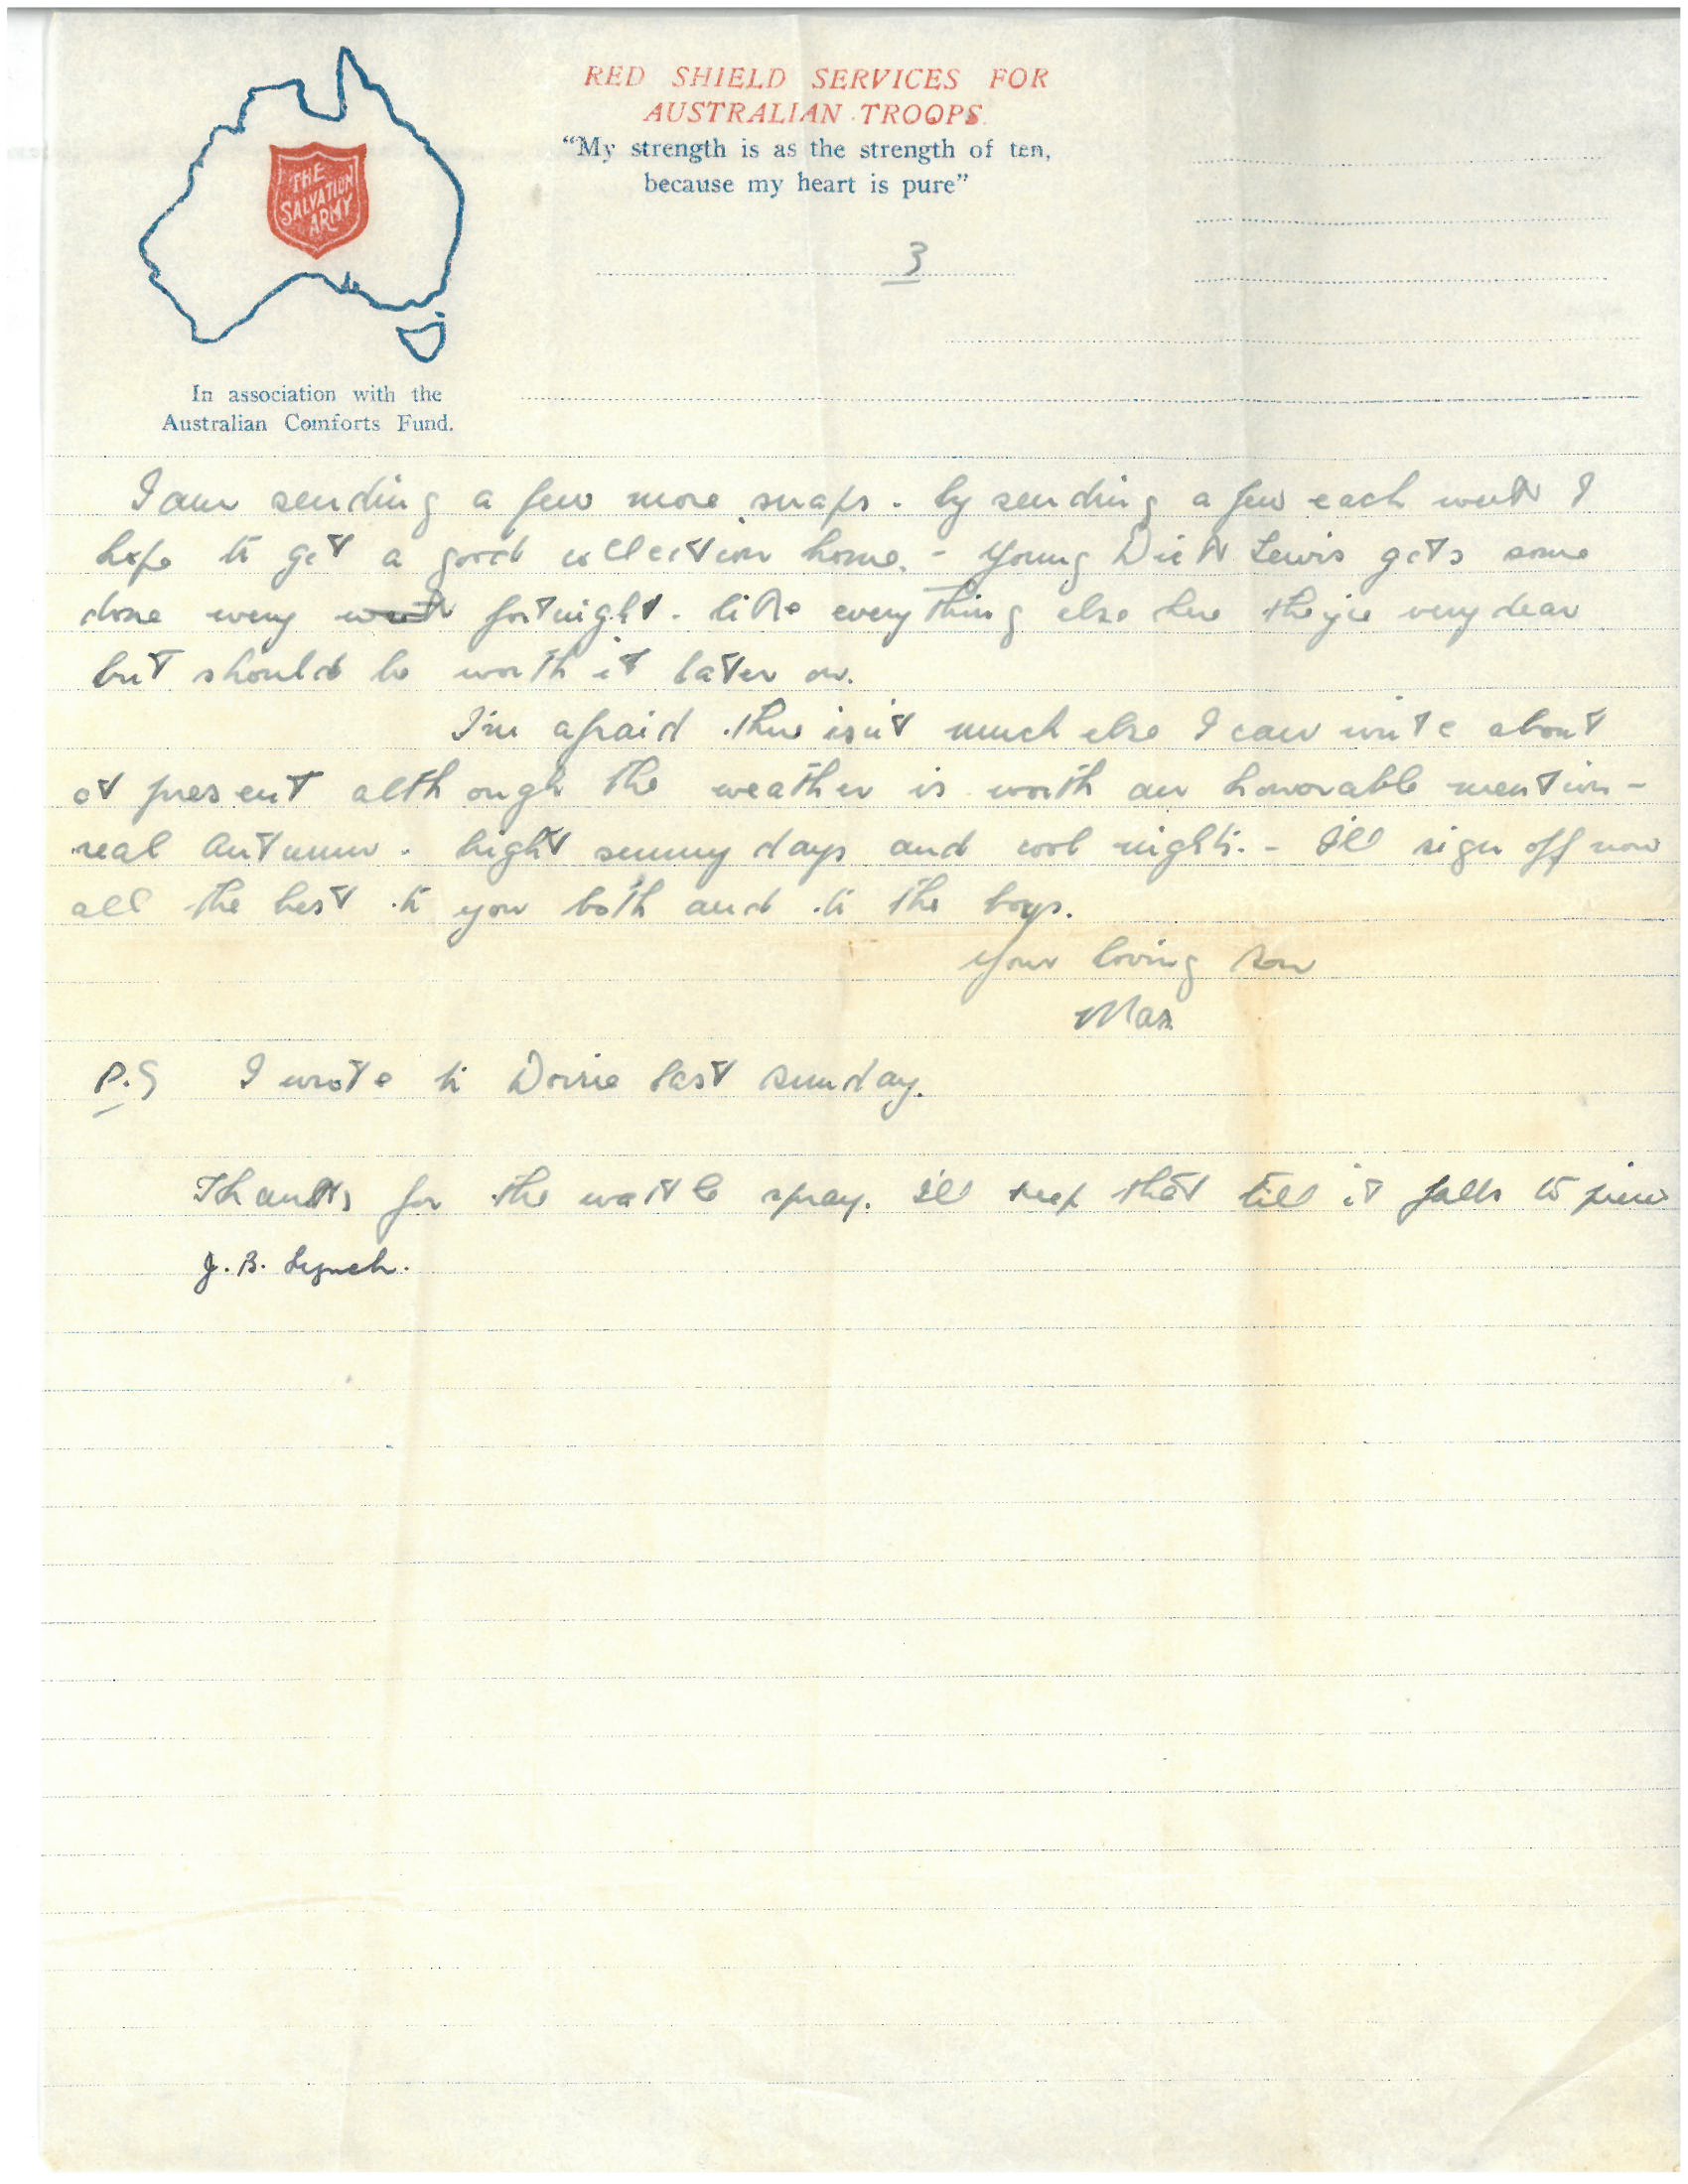 RED SHIELD SERVICES FOR
AUSTRALIAN TROOPS.
"My strength is as the strength of ten,
because my heart is pure"
THE
SALVATION
ARMY
3
In association with the
Australian Comforts Fund.
I am sending a few more snaps. by sending a few each week I
hope to get a good collection home. - Young Dick Lewis gets some
done every week fortnight. like everything else here they're very dear
but should be worth it later on.
I'm afraid there isn't much else I can write about
at present although the weather is worth an honorable mention -
real Autumn. bright sunny days and cool nights. - I'll sign off now
all the best to you both and to the boys.
Your loving son
Max
P.S I wrote to Dorrie last Sunday.
Thanks for the wattle spray. I'll keep that till it falls to pieces
J. B. Lynch.